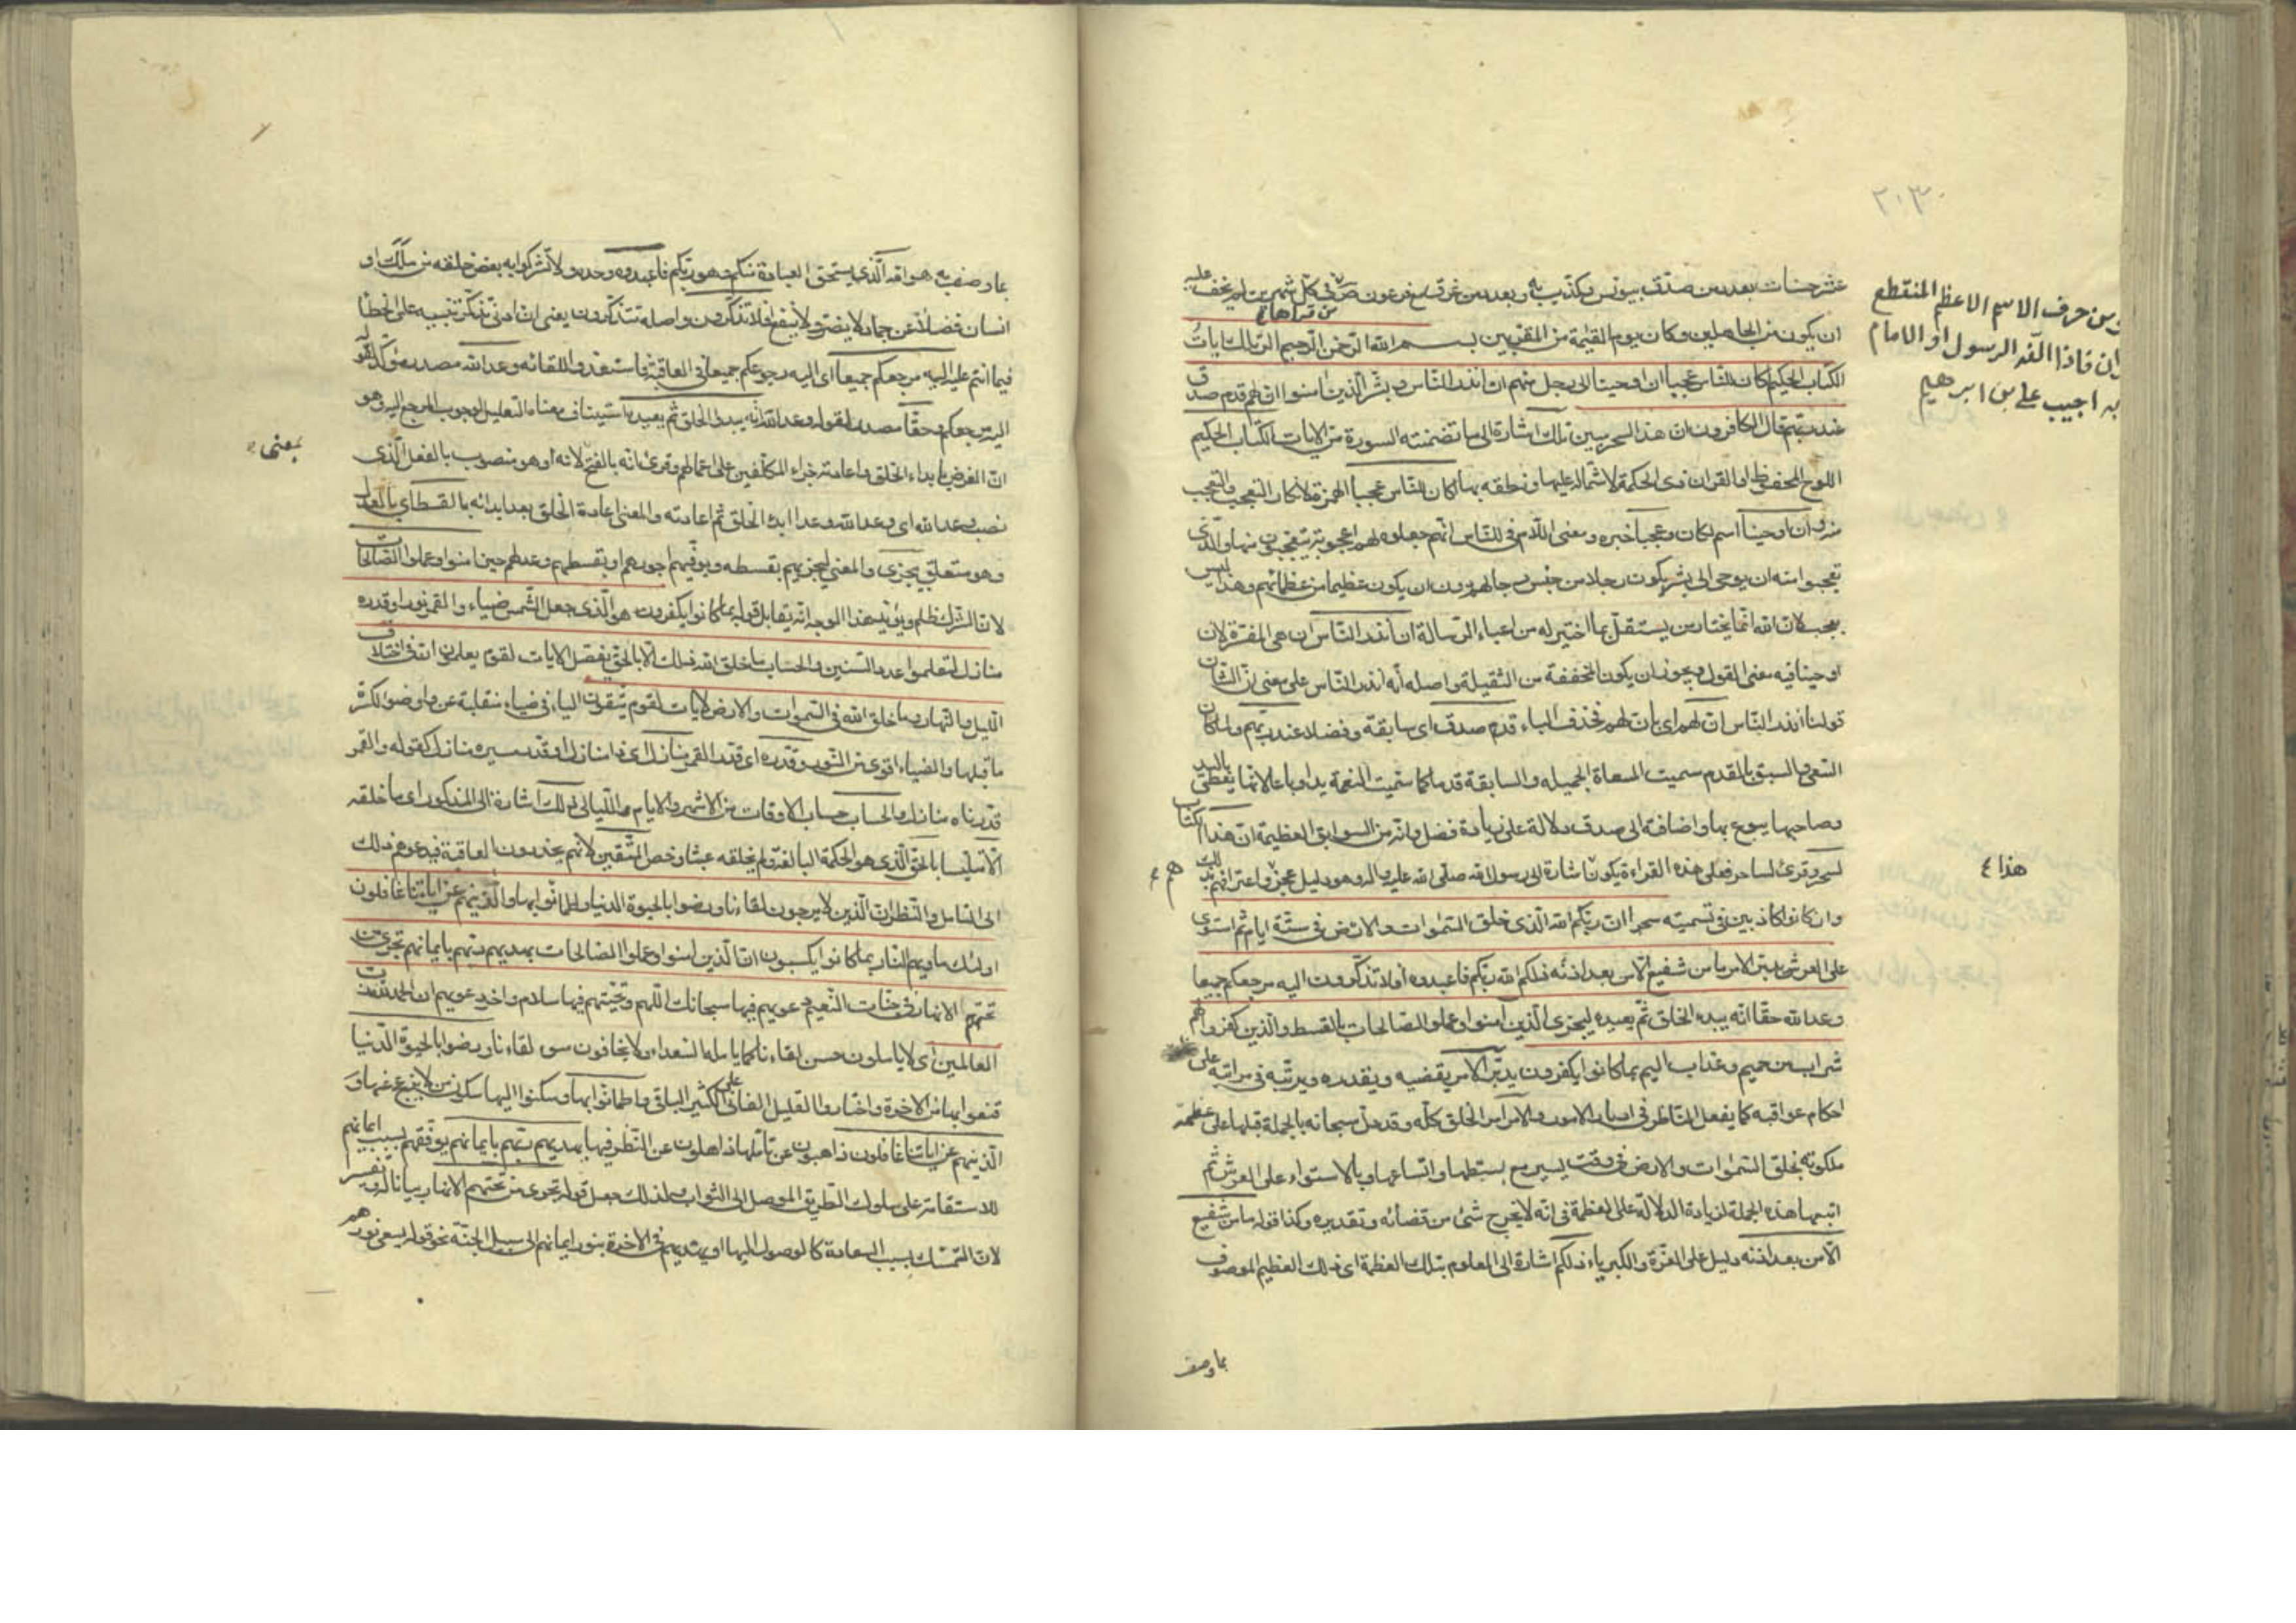 ٢٠٣
عشر حسنات بعدد من صدّق بيونس وكذب به وبعدد من غرق مع فرعون ص ق في كل شهرين لم يخف عليه
من قراها
ان يكون من الجاهلين وكان يوم القيمة من المقربين بسم الله الرحمن الرحيم الر تلك ايات
الكتاب الحكيم اكان للناس عجبا ان اوحينا الى رجل منهم ان انذر الناس وبشر الذين امنوا ان لهم قدم صدق
عند ربهم قال الكافرون ان هذا لسحر مبين تلك اشارة الى ما تضمنته السورة من الايات الكتاب الحكيم
اللوح المحفوظ او القران ذى الحكمة لاشتماله عليها ونطقه بها اكان للناس عجبا الهمزة لانكار التعجب والتعجيب
منه وان اوحينا اسم كان وعجبا خبره ومعنى اللام فى للناس انهم جعلوه لهم اعجوبة يتعجبون منها والذى
تعجبوا منه ان يوحى الى بشر يكون رجلا من جنس رجالهم دون ان يكون عظيما من عظمائهم وهذا ليس
بعجب لان الله انما يختار من يستقل بما اختير له من اعباء الرسالة ان انذر الناس ان هى المفسرة لان
اوحينا فيه معنى القول ويجوز ان يكون المخففة من الثقيلة واصله أنه أنذر الناس على معنى ان الشان
قولنا أنذر الناس ان لهم اى بان لهم فحذف الباء قدم صدق اى سابقة وفضلا عند ربهم ولما كان
السعى والسبق بالقدم سميت المسعاة الجميله والسابقة قدما كما سميت النعمة يدا وباعا لانها يعطى باليد
وصاحبها يبوع بها واضافته الى صدق دلالة على زيادة فضل وانه من السوابق العظيمة ان هذا الكتاب
لسحر وقرئ لساحر فعلى هذه القراءة يكون اشارة الى رسول الله صلى الله عليه واله وهو دليل عجزهم واعترافهم بذلك
وان كانوا كاذبين فى تسميته سحرا ان ربكم الله الذى خلق السموات والارض فى ستة ايام ثم استوى
على العرش يدبر الامر ما من شفيع الا من بعد اذنه ذلكم الله ربكم فاعبدوه أفلا تذكرون اليه مرجعكم جميعا
وعد الله حقا انه يبدء الخلق ثم يعيده ليجزى الذين امنوا وعملوا الصالحات بالقسط والذين كفروا لهم
شراب من حميم وعذاب اليم بما كانوا يكفرون يدبر الامر يقضيه ويقدره ويرتبه فى مراتبه على
احكام عواقبه كما يفعل الناظر فى ادبار الامور والامر امر الخلق كله وقد دل سبحانه بالجملة قبلها على عظمة
ملكوته بخلق السموات والارض فى وقت يسير مع بسطها واتساعها وبالاستواء على العرش ثم
اتبعها هذه الجملة لزيادة الدلالة على العظمة فى انه لا يخرج شئ من قضائه وتقديره وكذا قوله ما من شفيع
الا من بعد اذنه دليل على العزة والكبرياء ذلكم اشارة الى المعلوم بتلك العظمة اى ذلك العظيم الموصوف
بما وصف
من حرف الاسم الاعظم المنقطع
ان فاذا الفه الرسول او الامام
به اجيب على بن ابرهيم
هذا ٤
هم
بما وصف به هو الله الذى يستحق العبادة منكم وهو ربكم فاعبدوه وحده ولا تشركوا به بعض خلقه من ملك او
انسان فضلا عن جماد لا يضر ولا ينفع افلا تذكرون واصله تتذكرون يعنى ان ادنى تذكر تنبيه على الخطأ
فيما انتم عليه اليه مرجعكم جميعا اى اليه رجوعكم جميعا فى العاقبة فاستعدوا للقائه وعد الله مصدر مؤكد لقوله
اليه مرجعكم وحقا مصدر لقوله وعد الله انه يبدؤ الخلق ثم يعيده استيناف معناه التعليل لوجوب المرجع اليه وهو
ان الغرض بابداء الخلق واعادته جزاء المكلفين على اعمالهم وقرئ انه بالفتح لانه او هو منصوب بالفعل الذى
بمعنى
نصب وعد الله اى وعد الله وعدا ابدء الخلق ثم اعادته والمعنى اعادة الخلق بعد ابدائه بالقسط اى بالعدل
وهو متعلق بيجزى والمعنى ليجزيهم بقسطه ويوفيهم اجورهم او بقسطهم وعدلهم حين امنوا وعملوا الصالحات
لان الشرك ظلم ويؤيد هذا الوجه انه يقابل قوله بما كانوا يكفرون هو الذى جعل الشمس ضياء والقمر نورا وقدره
منازل لتعلموا عدد السنين والحساب ما خلق الله ذلك الا بالحق يفصل الايات لقوم يعلمون ان فى اختلاف
الليل والنهار وما خلق الله فى السموات والارض لايات لقوم يتقون الياء فى ضياء منقلبة عن واو ضوء لكسرة
ما قبلها والضياء اقوى من النور وقدره اى قدر القمر منازل اى ذا منازل او قدر مسيره منازل كقوله والقمر
قدرناه منازل والحساب حساب الاوقات من الاشهر والايام والليالى ذلك اشارة الى المذكور اى ما خلقه
الا متلبسا بالحق الذى هو الحكمة البالغة ولم يخلقه عبثا وخص المتقين لانهم يحذرون العاقبة فيدعوهم ذلك
الى التامل والنظر ان الذين لا يرجون لقاءنا ورضوا بالحيوة الدنيا واطمانوا بها والذين هم عن اياتنا غافلون
اولئك ماويهم النار بما كانوا يكسبون ان الذين امنوا وعملوا الصالحات يهديهم ربهم بايمانهم تجرى من
تحتهم الانهار فى جنات النعيم دعويهم فيها سبحانك اللهم وتحيتهم فيها سلام واخر دعويهم ان الحمد لله رب
العالمين اى لا ياملون حسن لقاءنا كما يامله السعداء ولا يخافون سوء لقاءنا ورضوا بالحيوة الدنيا
قنعوا بها من الاخرة واختاروا القليل الفانى على الكثير الباقى واطمانوا بها وسكنوا اليها سكون من لا ينزعج عنها و
الذينهم عن اياتنا غافلون ذاهبون عن تاملها ذاهلون عن النظر فيها يهديهم ربهم بايمانهم يوفقهم بسبب ايمانهم
للاستقامة على سلوك الطريق الموصل الى الثواب ولذلك جعل قوله تجرى من تحتهم الانهار بيانا له وتفسيرا
لان التمسك بسبب السعادة كالوصول اليها او يهديهم فى الاخرة بنور ايمانهم الى سبيل الجنة نحو قوله يسعى نورهم